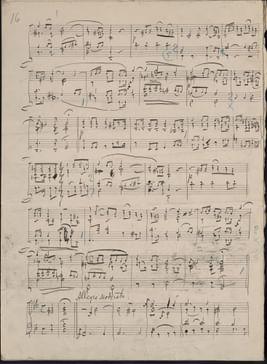 16
Allegro moderato